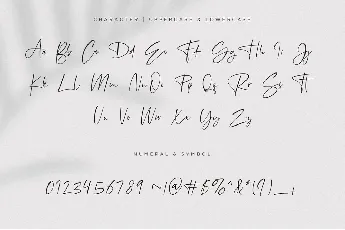 CHARACTER | UPPERCASE & LOWERCASE
Aa Bb Cc Dd Ee Ff Gg Hh Ii Jj
Kk Ll Mm Nn Oo Pp Qq Rr Ss Tt
Uu Vv Ww Xx Yy Zz
NUMERAL & SYMBOL
0123456789 ~!@#$%^&*()_